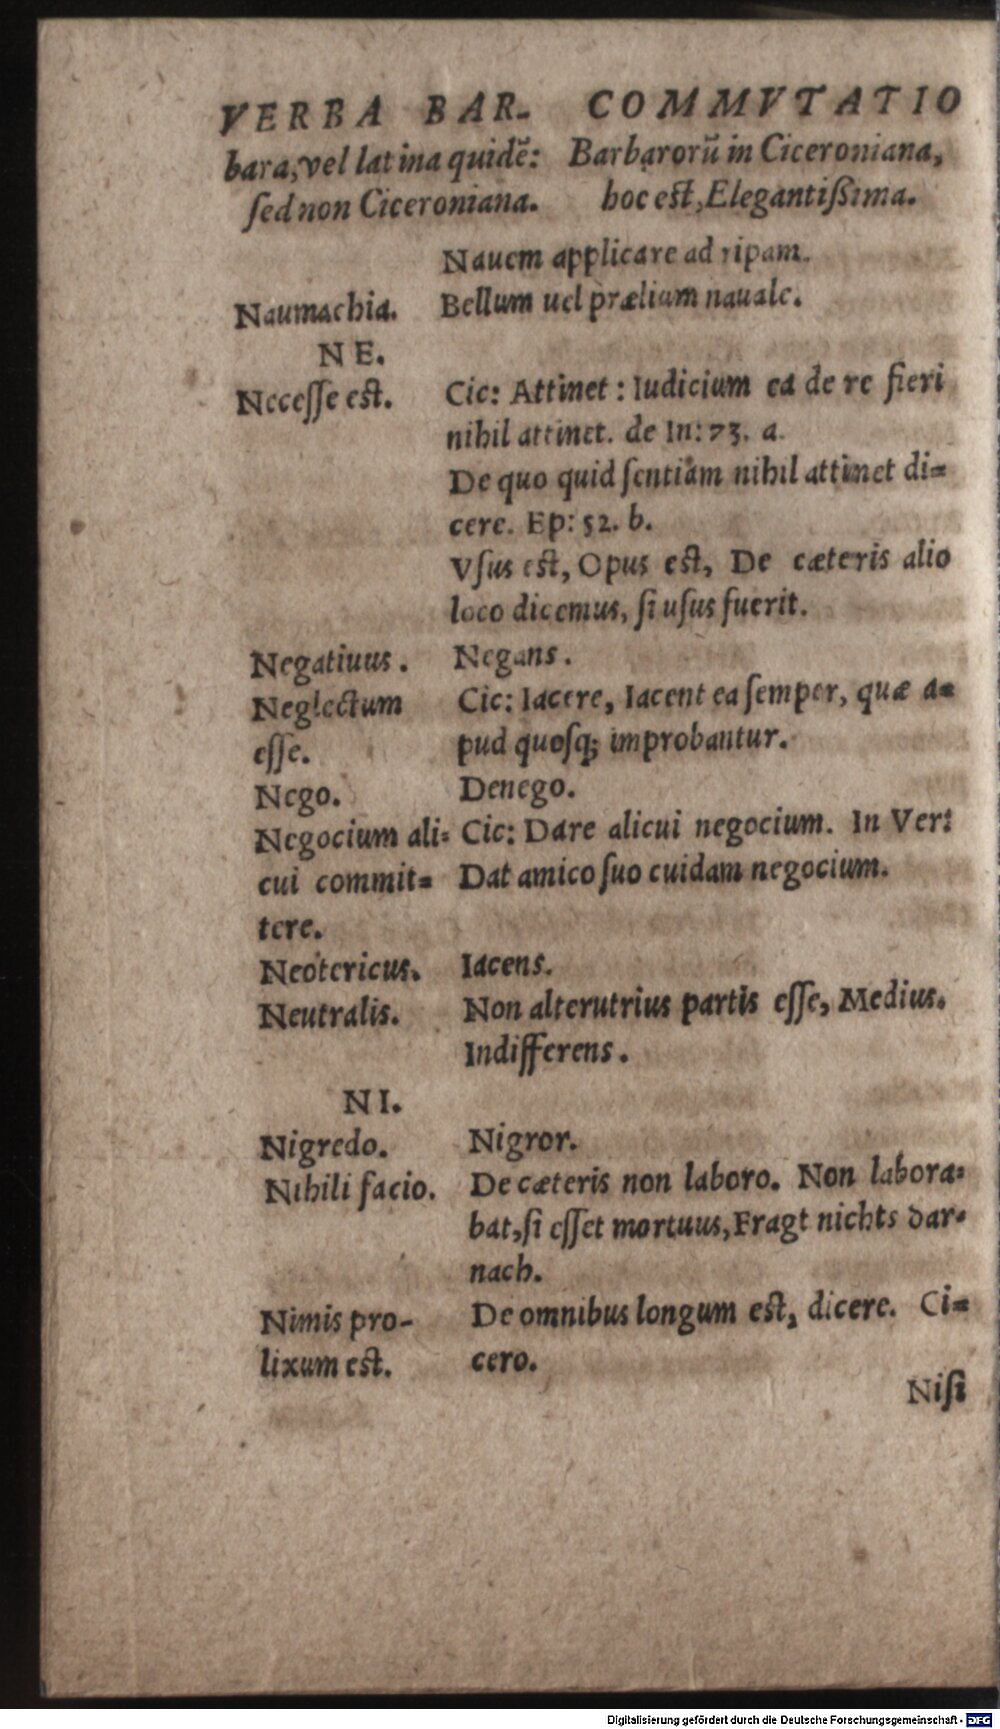 VERBA BAR- COMMVTATIO
bara, vel latina quidē: Barbarorū in Ciceroniana,
ſed non Ciceroniana. hoc eſt, Elegantißima.
Nauem applicare ad ripam.
Naumachia. Bellum uel prælium nauale.
NE.
Neceſſe eſt. Cic: Attinet : Iudicium ea de re fieri
nihil attinet. de In: 73. a.
De quo quid ſentiam nihil attinet di=
cere. Ep: 52. b.
Vſus eſt, Opus eſt, De cæteris alio
loco dicemus, ſi uſus fuerit.
Negatiuus. Negans.
Neglectum Cic: Iacere, Iacent ea ſemper, quæ a=
eſſe. pud quoſq; improbantur.
Nego. Denego.
Negocium ali= Cic: Dare alicui negocium. In Ver:
cui commit= Dat amico ſuo cuidam negocium.
tere.
Neotericus. Iacens.
Neutralis. Non alterutrius partis eſſe, Medius.
Indifferens.
NI.
Nigredo. Nigror.
Nihili facio. De cæteris non laboro. Non labora=
bat, ſi eſſet mortuus, Fragt nichts dar=
nach.
Nimis pro- De omnibus longum eſt, dicere. Ci=
lixum eſt. cero.
Niſi
Digitalisierung gefördert durch die Deutsche Forschungsgemeinschaft - DFG